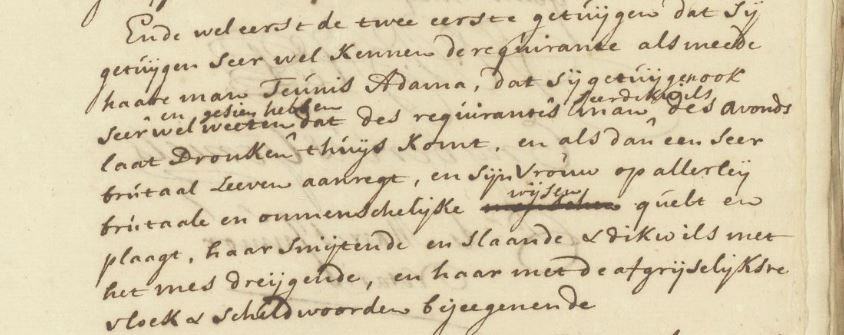 Ende wel eerst de twee eerste getuijgen dat sij
getuijgen seer wel kennen de requirante als meede
haare man Teunis Adama, dat sij getuijgen ook
en gesien hebben seer dikwils
seer wel weeten dat des requirantes man des avonds
laat dronken thuijs komt, en als dan een seer
brutaal leeven aanregt, en sijn vrouw op allerleij
wijsen
brutaale en onmenschelijke quelt en
plaagt, haar smijtende en slaande & dikwils met
het mes dreijgende, en haar met de afgrijselijkste
vloek & scheldwoorden bijeegenende